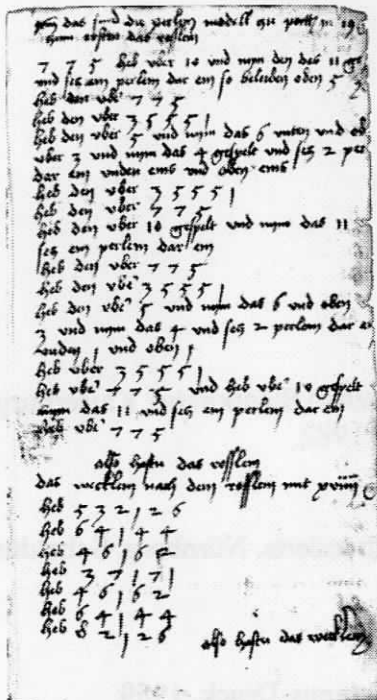 das sind die perlen modell
zum ersten das rosslein
7 7 5 heb vber 10 vnd nym den das 11
vnd secz ein perlein dar ein so beleiben oben 5
heb den vbr 7 7 5
heb den vber 3 5 5 5 1
heb den vber 5 vnd nym das 6 vnten vnd
vber 3 vnd nym das 4 gespelt vnd secz 2 per
dar ein vnden eins vnd oben eins
heb den vber 3 5 5 5 1
heb den vber 7 7 5
heb den vber 10 gespelt vnd nym das 11
secz ein perlein dar ein
heb den vber 7 7 5
heb den vbr 3 5 5 5 1
heb den vbr 5 vnd nym das 6 vnd oben
3 vnd nym das 4 vnd secz 2 perlein dar
vnden 1 vnd oben 1
heb vber 3 5 5 5 1
heb vbr 7 7 5 vnd heb vbr 10 gespelt
nym das 11 vnd secz ein perlein dar ein
heb vbr 7 7 5
also hastu das rosslein
das wecklein nach dem rosslein mit
heb 5 3 2 1 2 6
heb 6 4 1 4 4
heb 4 6 1 6 2
heb 3 7 1 7 1
heb 4 6 1 6 2
heb 6 4 1 4 4
heb 8 2 1 2 6
also hastu das wecklein